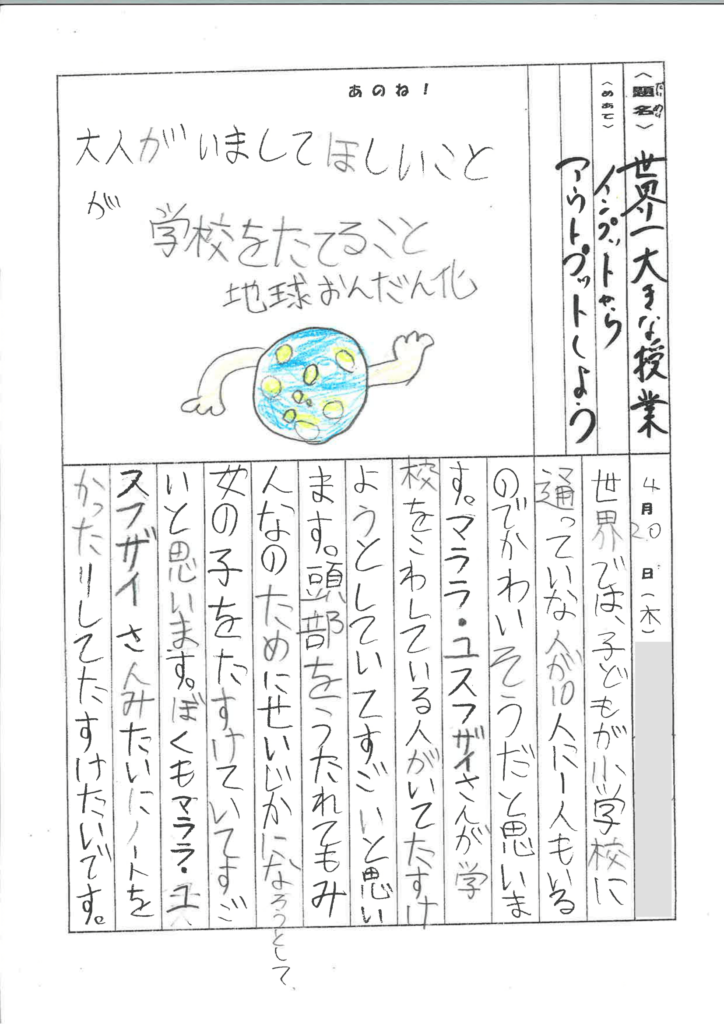 〈題名〉世界一大きな授業
だいめい
〈めあて〉インプットから
アウトプットしよう
あのね！
大人がいましてほしいこと
が
学校をたてること
地球おんだん化
4月20日(木)
世界では、子どもが小学校に
通っていな人が10人に1人もいる
のでかわいそうだと思いま
す。マララ・ユスフザイさんが学
校をこわしている人がいてたすけ
ようとしていてすごいと思い
ます。頭部をうたれてもみ
んなのためにせいじかになろうとして
女の子をたすけていてすご
いと思います。ぼくもマララ・ユ
スフザイさんみたいにノートを
かったりしてたすけたいです。